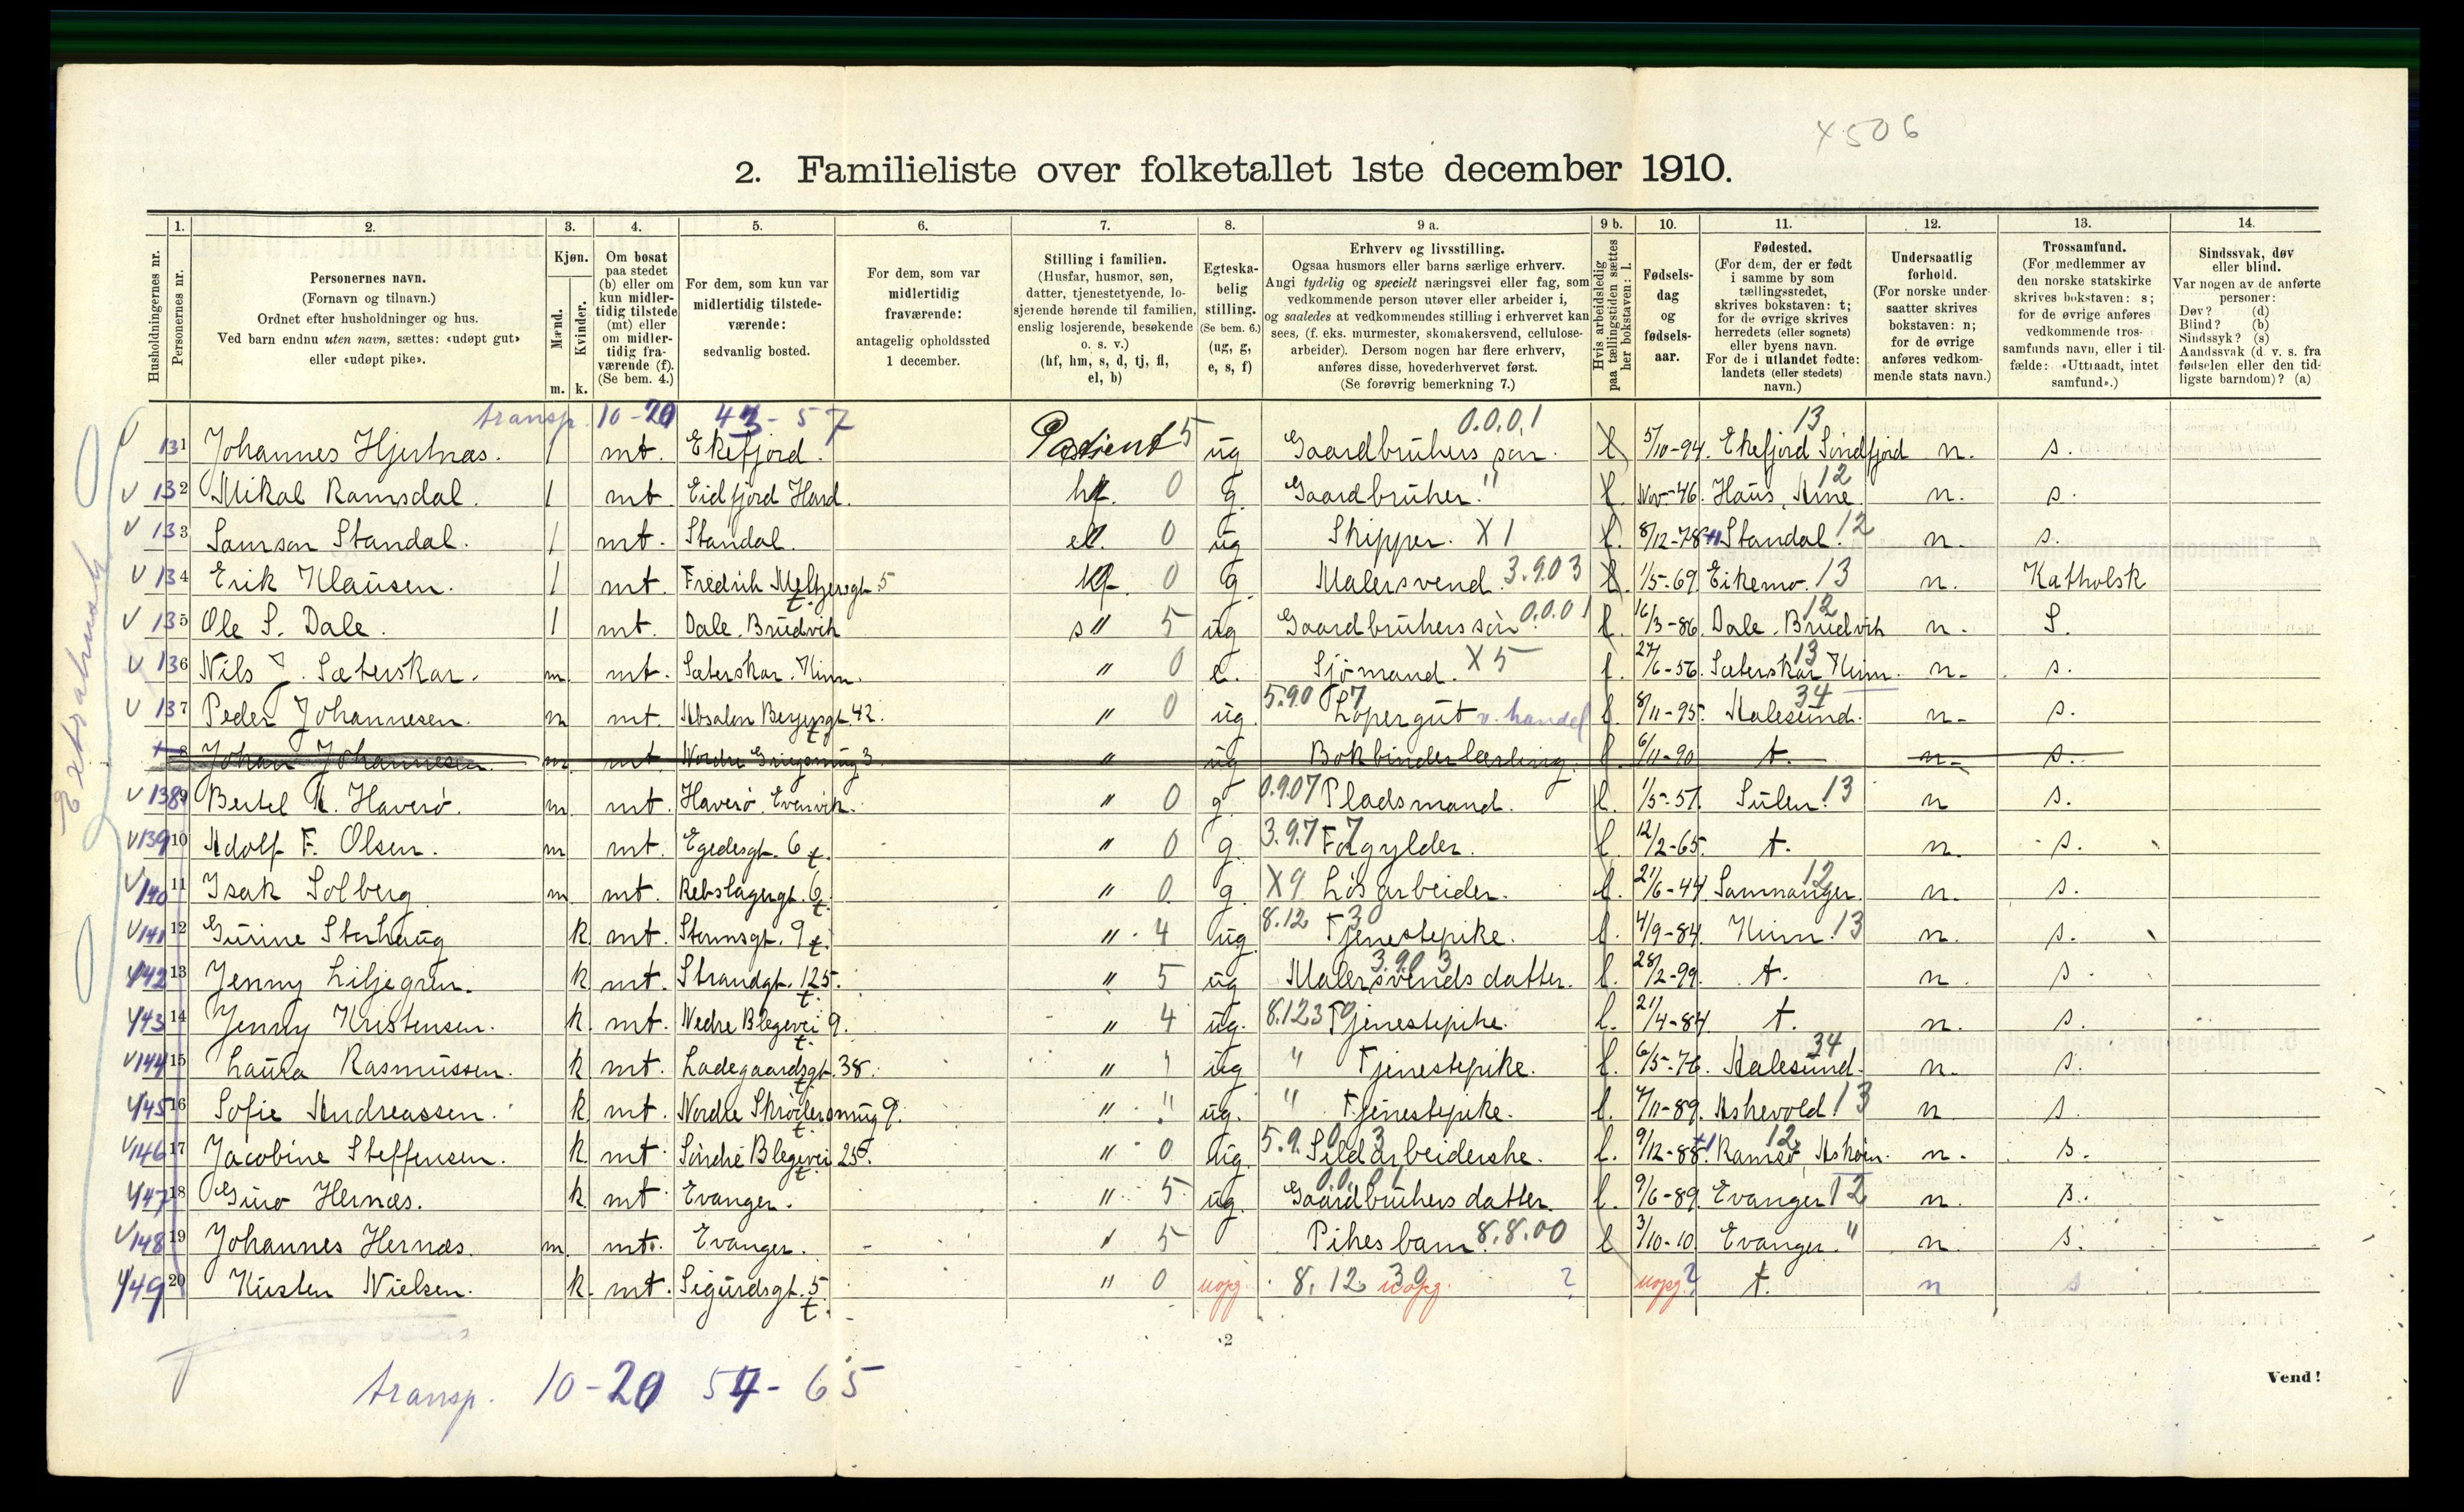 X 506
2. Familieliste over folketallet 1ste december 1910.
Husholdningernes nr.
1. Personernes nr.
2. Personernes navn. (Fornavn og tilnavn.) Ordnet efter husholdninger og hus. Ved barn endnu uten navn, sættes: «udøpt gut» eller «udøpt pike».
3. Kjøn. Mænd. m. Kvinder. k.
4. Om bosat paa stedet (b) eller om kun midlertidig tilstede (mt) eller om midlertidig fraværende (f). (Se bem. 4.)
5. For dem, som kun var midlertidig tilstedeværende: sedvanlig bosted.
6. For dem, som var midlertidig fraværende: antagelig opholdssted 1 december.
7. Stilling i familien. (Husfar, husmor, søn, datter, tjenestetyende, losjerende hørende til familien, enslig losjerende, besøkende o. s. v.) (hf, hm, s, d, tj, fl, el, b)
8. Egteskabelig stilling. (Se bem. 6.) (ug, g, e, s, f)
9 a. Erhverv og livsstilling. Ogsaa husmors eller barns særlige erhverv. Angi tydelig og specielt næringsvei eller fag, som vedkommende person utøver eller arbeider i, og saaledes at vedkommendes stilling i erhvervet kan sees, (f. eks. murmester, skomakersvend, cellulosearbeider). Dersom nogen har flere erhverv, anføres disse, hovederhvervet først. (Se forøvrig bemerkning 7.)
9 b. Hvis arbeidsledig paa tællingstiden sættes her bokstaven: l.
10. Fødselsdag og fødselsaar.
11. Fødested. (For dem, der er født i samme by som tællingsstedet, skrives bokstaven: t; for de øvrige skrives herredets (eller sognets) eller byens navn. For de i utlandet fødte: landets (eller stedets) navn.)
12. Undersaatlig forhold. (For norske undersaatter skrives bokstaven: n; for de øvrige anføres vedkommende stats navn.)
13. Trossamfund. (For medlemmer av den norske statskirke skrives bokstaven: s; for de øvrige anføres vedkommende trossamfunds navn, eller i tilfælde: «Uttraadt, intet samfund».)
14. Sindssvak, døv eller blind. Var nogen av de anførte personer: Døv? (d) Blind? (b) Sindssyk? (s) Aandssvak (d. v. s. fra fødselen eller den tidligste barndom)? (a)
transp. 10-20 43-57
Extrahusst
131 Johannes Hjertnæs. 1 mt. Ekefjord. Patient 5 ug Gaardbrukers søn. 0.0.0.1 5/10-94. Ekefjord Søndfjord 13 n. s.
132 Mikal Ramsdal. 1 mt Eidfjord Hard. 0 g. Gaardbruker. " Nov-46. Haus, Arne 12 n. s.
133 Samson Standal. 1 mt. Standal. el. 0 ug Skipper. X 1 l. 8/12-78 Standal. 12 n. s.
134 Erik Klausen. 1 mt. Fredrik Meltzersgt. 5 t. 0 g. Malersvend. 3.903 1/5-69 Eikemo. 13 n. Katholsk
135 Ole S. Dale. 1 mt. Dale. Brudvik s " 5 ug Gaardbrukers søn 0.0.0 1 l. 16/3-86. Dale. Brudvik 12 n. S.
136 Nils J. Sæterskar. m. mt. Sæterskar. Kinn. " 0 e. Sjømand. X 5 l. 27/6-56. Sæterskar Kinn. 13 n. s.
137 Peder Johannesen. m mt. Absalon Beyersgt. 42. t " 0 ug. 5.90 7 Løpergut v. handel l. 8/11-95. Aalesund. 34 n. s.
8 Johan Johannesen. m. mt. Nordre Griegsmug 3 " ug Bokbinderlærling. l 6/11-90 t. n. s.
138 9 Bertel A. Haverø. m. mt. Haverø. Evenvik. " 0 g. 0.907 Pladsmand. l. 1/5-51. Sulen. 13 n s.
139 10 Adolf F. Olsen. m mt. Egedesgt. 6 t. " 0 g. 3.9.7 7 Forgylder. l 12/2-65. t. n. s.
140 11 Isak Solberg. m. mt. Rebslagergt. 6 t. " 0 g. X 9 Løsarbeider. l. 21/6-44 Samnanger. 12 n. s.
141 12 Gurine Storhaug k. mt. Stormsgt. 9 t. " 4 ug. 8.12 30 Tjenestepike. l. 4/9-84. Kinn. 13 n. s.
142 13 Jenny Liljegren. k mt. Strandgt. 125. t. " 5 ug Malersvends datter. 3.90 3 l. 28/2-99. t. n. s.
143 14 Jenny Kristensen. k. mt. Nedre Blegevei 9. t. " 4 ug. 8.1230 Tjenestepike. l. 21/4-84. t. n. s.
144 15 Laura Rasmussen. k mt. Ladegaardsgt. 38. t " " ug " Tjenestepike. l. 6/5-76. Aalesund. 34 n. s.
145 16 Sofie Andreassen. k mt. Nordre Skrødersmug 9. t " " ug. " Tjenestepike. l. 7/11-89. Askevold 13 n s.
146 17 Jacobine Steffensen. k. mt. Søndre Blegevei 25. t. " 0 ug. 5.9.0 3 Sildarbeiderske. l. 9/12-88. Ramsø, Askøen. 12 n. s.
147 18 Guro Hernæs. k. mt Evanger. " 5 ug. Gaardbrukers datter. 0.0.01 l. 9/6-89. Evanger 12 n. s.
148 19 Johannes Hernæs. m. mt. Evanger. " 5 Pikesbarn. 8.8.00 l 3/10-10 Evanger. " n. s.
149 20 Kirsten Nielsen. k. mt. Sigurdsgt. 5 t. " 0 uopg. 8.12 30 uopg. ? uopg. ? t. n s
2
transp. 10-20 57-65
Vend!